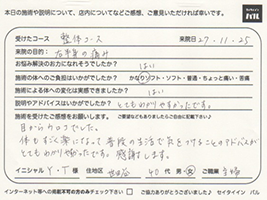 本日の施術や説明について、店内についてなどご感想、ご意見いただければ幸いです。
バル
受けたコース 整体コース 来院日 27・11・25
来院の目的: 右半身の痛み
お悩み解決のお力になれそうでしたか? はい
施術の体へのご負担はいかがでしたか? かなりソフト・ソフト・普通・ちょっと痛い・苦痛
施術による体への変化は実感できましたか? はい
説明やアドバイスはいかがでしたか? とてもわかりやすかったです。
施術を受けたご感想をお願いします。 ご要望等ございましたらお書きください
目からウロコでした。
体もすごく楽になって普段の生活で気をつけることのアドバイスが
とてもわかりやすかったです。感謝します。
イニシャル Y・T 様 住地区 世田谷 40 代 男・女 ご職業 主婦
インターネット等への掲載不可の方のみチェック下さい ご協力ありがとうございました セイタイイン バル